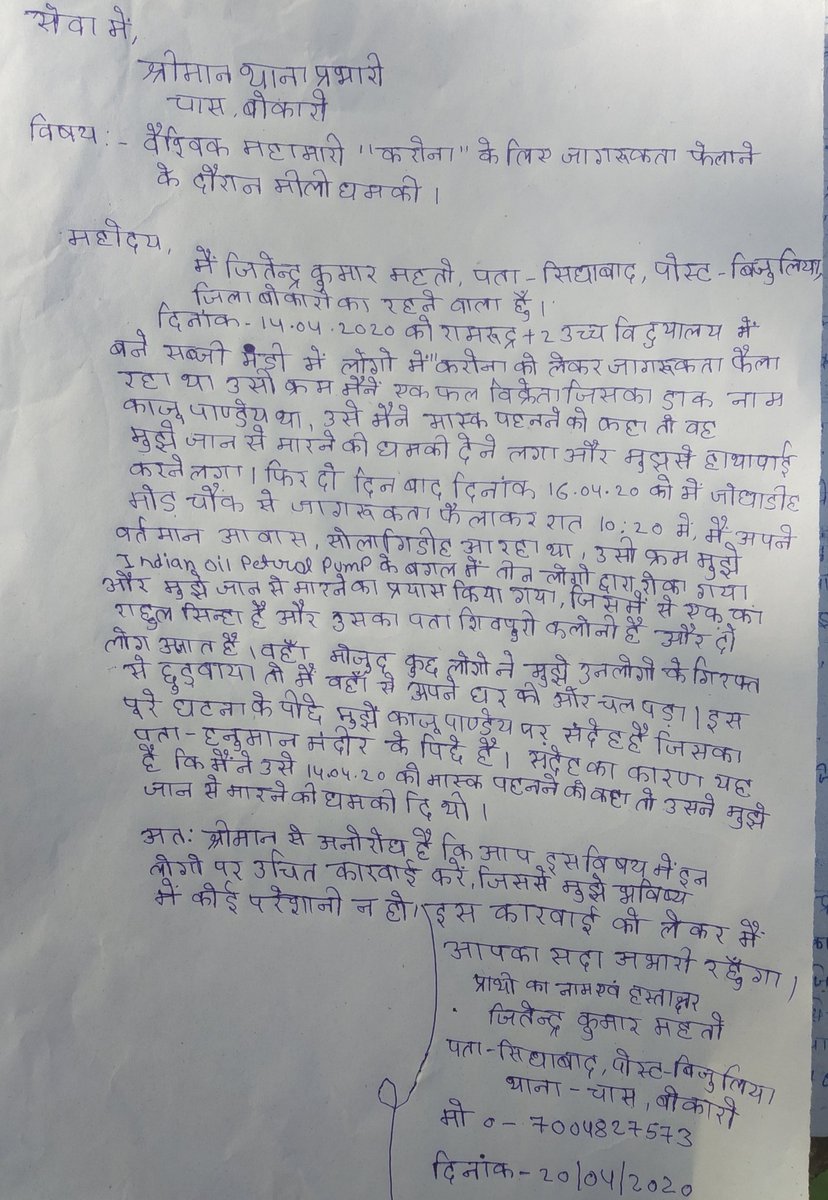 सेवा में,
श्रीमान थाना प्रभारी
चास, बोकारो
विषय :- वैश्विक महामारी "करोना" के लिए जागरूकता फेलाने
के दौरान मीली धमकी ।
महोदय,
मैं जितेन्द्र कुमार महतो, पता - सिधाबाद, पोस्ट - बिजुलिया,
जिला बोकारो का रहने वाला हुँ ।
दिनांक - 14.04.2020 को रामरूद्र +2 उच्च विदुयालय में
बने सब्जी मंडी में लोगो में "करोना को लेकर जागरूकता फैला
रहा था उसी क्रम मैंने एक फल विक्रेता जिसका डाक नाम
काजू पाण्डेय था, उसे मैने मास्क पहनने को कहा तो वह
मुझे जान से मारने की धमकी देने लगा और मुझसे हाथापाई
करने लगा । फिर दो दिन बाद दिनांक 16.04.20 को में जोधाडीह
मोड़ चौक से जागरूकता फैलाकर रात 10:20 में, मैं अपने
वर्तमान आवास, सोलागिडीह आ रहा था, उसी क्रम मुझे
Indian oil Petrol Pump के बगल में तीन लोगो द्वारा रोका गया
और मुझे जान से मारने का प्रयास किया गया, जिसमें से एक का
राहुल सिन्हा है और उसका पता शिवपुरी कलोनी है और दो
लोग अज्ञात है । वहाँ मोजुद कुछ लोगो ने मुझे उनलोगो के गिरफ्त
से छुड़वाया तो मैं वहाँ से अपने घर की ओर चल पड़ा । इस
पूरे घटना के पीछे मुझे काजू पाण्डेय पर संदेह है जिसका
पता - हनुमान मंदीर के पिछे है । संदेह का कारण यह
है कि मैंने उसे 14.04.20 को मास्क पहनने को कहा तो उसने मुझे
जान से मारने की धमकी दि थी ।
अतः श्रीमान से अनोरोध है कि आप इस विषय में इन
लोगो पर उचित कारवाई करें, जिससे मुझे भविष्य
में कोई परेशानी न हो। इस कारवाई को लेकर मैं
आपका सदा अभारी रहुँगा ।
प्रार्थी का नाम एवं हस्ताक्षर
जितेन्द्र कुमार महतो
पता - सिधाबाद, पोस्ट - बिजुलिया
थाना - चास, बोकारो
मो ० - 7004827573
दिनांक - 20/04/2020